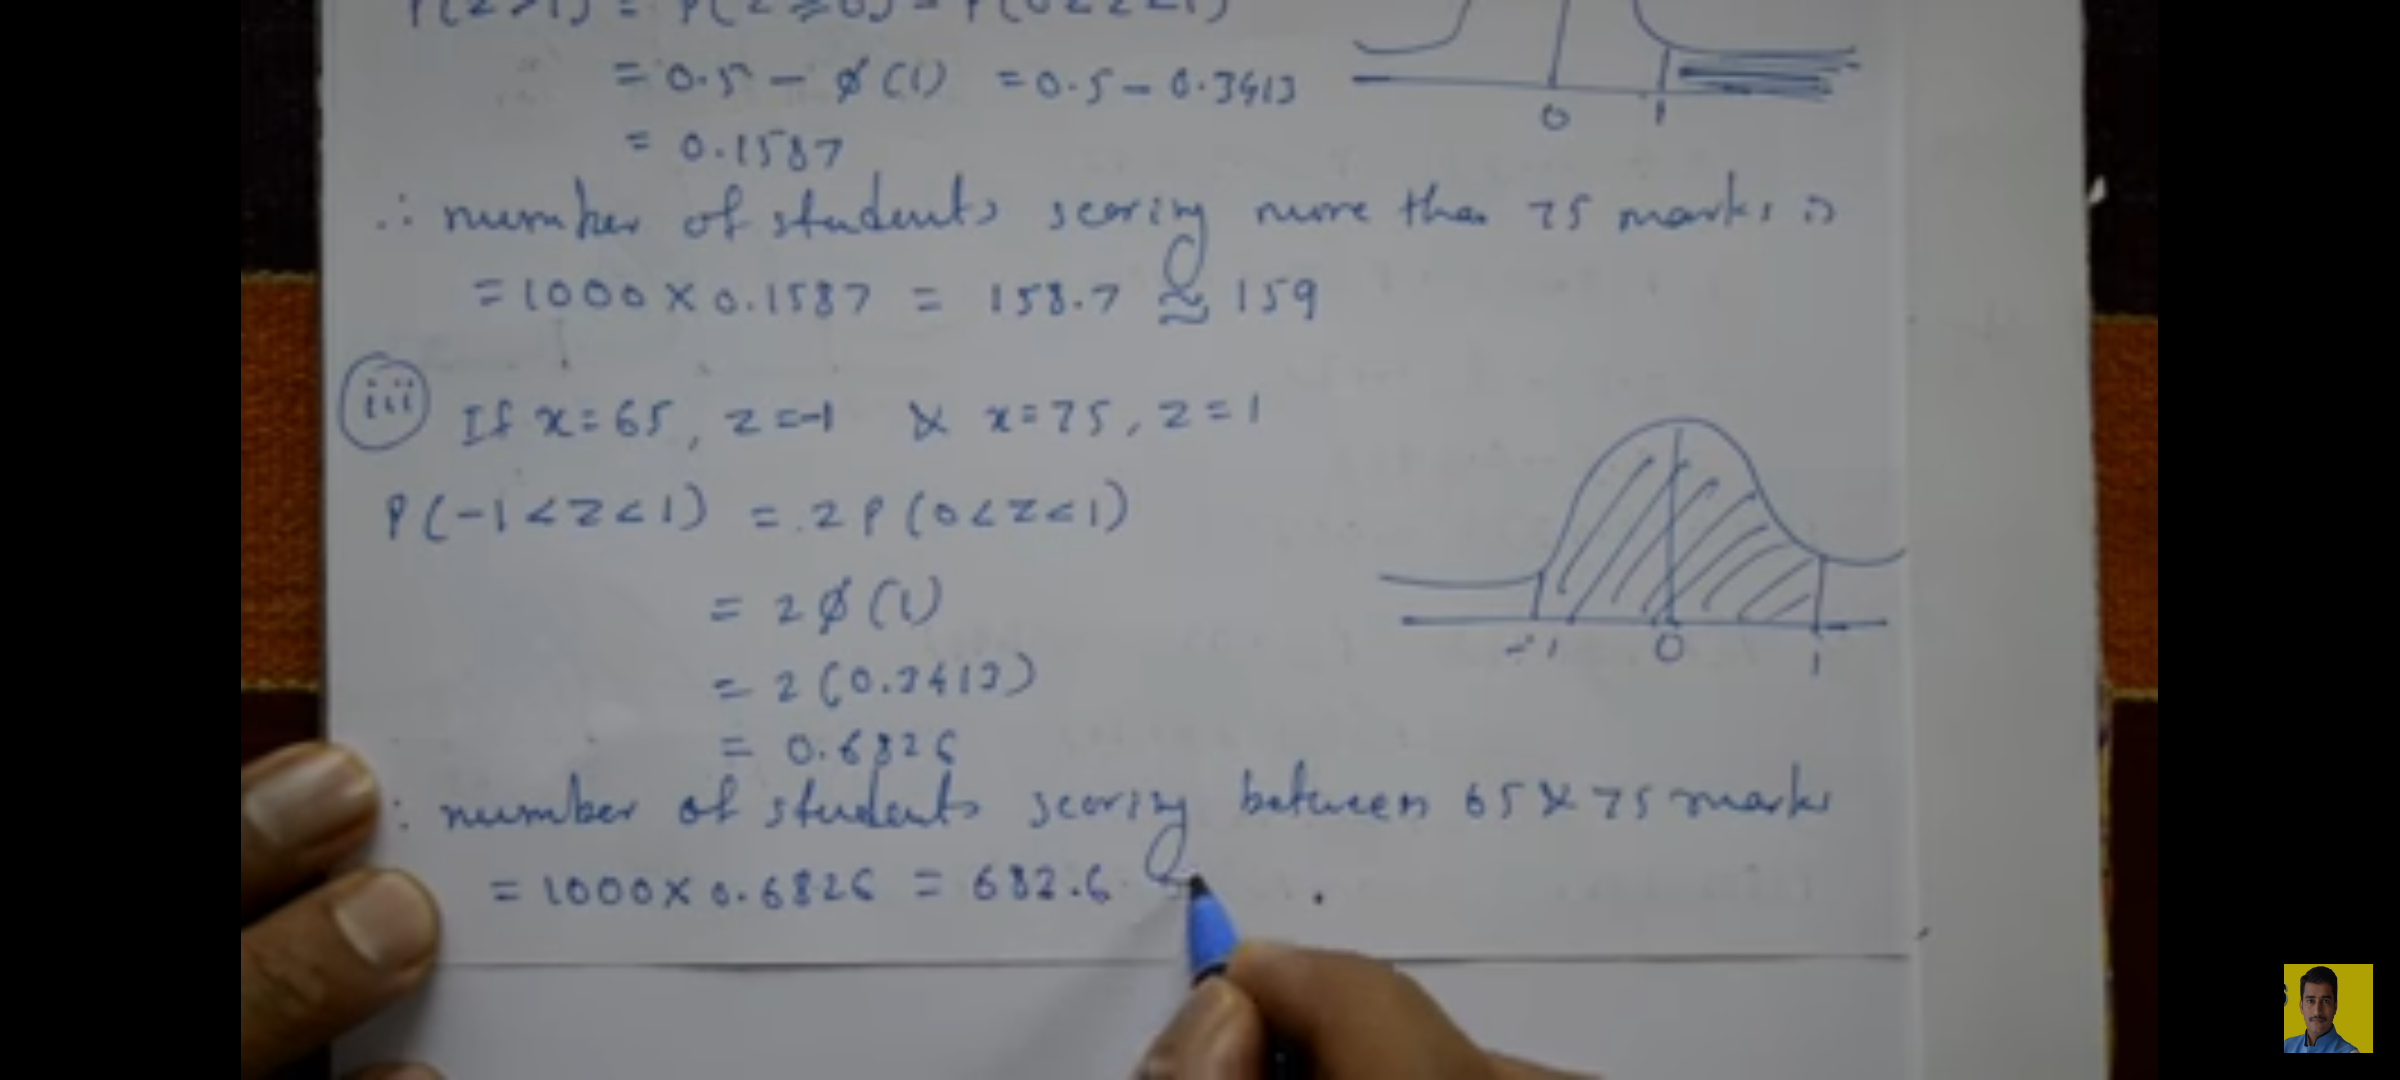 P(Z>1) = P(Z≥0) - P(0≤Z<1)
= 0.5 - φ(1) = 0.5 - 0.3413
0 1
= 0.1587
∴ number of students scoring more than 75 marks is
= 1000 × 0.1587 = 158.7 ≅ 159
iii If x=65, z=-1 & x=75, z=1
P(-1<Z<1) = 2P(0<Z<1)
= 2φ(1)
-1 0 1
= 2(0.3413)
= 0.6826
∴ number of students scoring between 65 & 75 marks
= 1000 × 0.6826 = 682.6